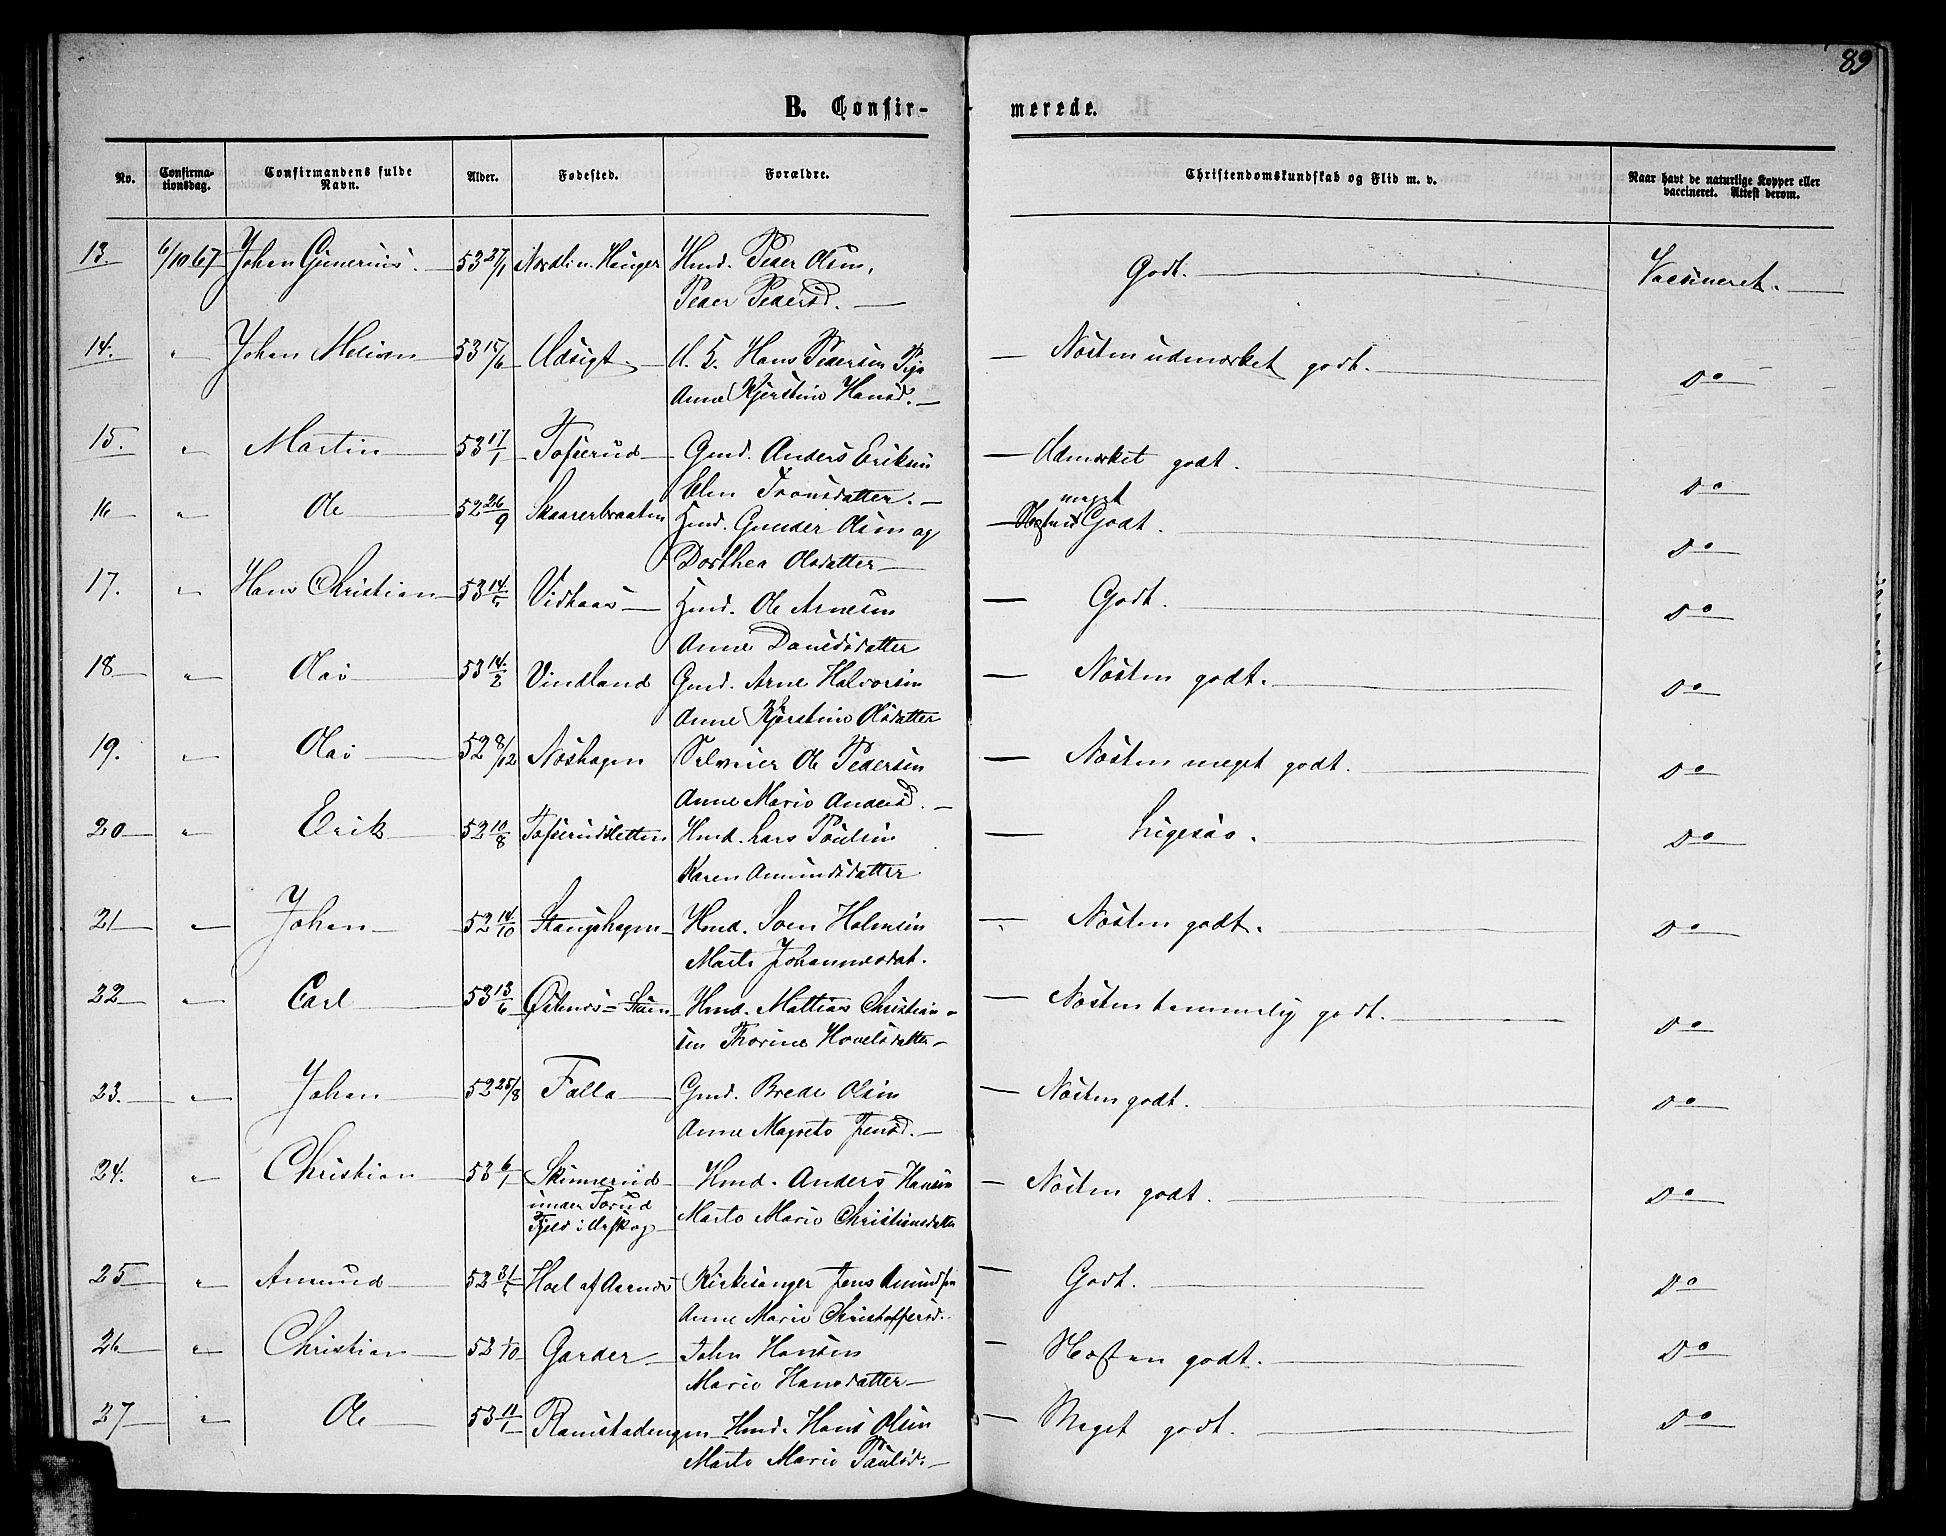 89
B. Confirmerede.
No. Confirmationsdag. Confirmandens fulde Navn. Alder. Fødested. Forældre. Christendomskundskab og Flid m. v. Naar havt de naturlige Kopper eller vaccineret. Attest derom.
13. 6/10 67 Johan Gunerius. 53 27/1 Nordli u. Hauger Hmd. Peder Olsen, Godt. Vaccineret.
Peder Pedersd.
14. " Johan 53 15/6 Udsigt Hans Pedersen Næsten udmærket godt. Do
Anne Kjerstine Hansd.
15. " Martin 53 17/1 Tofserud Gmd. Anders Eriksen Udmærket godt. Do
Elen Tronsdatter.
16 " Ole 52 26/9 Skaarerbraaten Hmd. Gunder Olsen og meget Godt. Do
Dorthea Olsdatter
17. " Hans Christian 53 14/5 Vidhaas Hmd. Ole Arnesen Godt. Do
Anne
18 " Olai 53 14/2 Vindland Gmd. Arne Halvorsen Næsten godt. Do
Anne Kjerstine Olsdatter
19. " Olai 52 8/12 Næshagen Selveier Ole Pedersen Næsten meget godt. Do
Anne Marie Andersd.
20 " Erik 52 10/8 Tofserudsletten Hmd. Lars Poulsen Ligesaa. Do
Karen Amundsdatter
21 " Johan 52 14/10 Stangshagen Hmd. Sven Holmsen Næsten godt. Do
Marte Johannesdat.
22 " Carl 53 13/6 Hmd. Mattias Christian- Næsten temmelig godt. Do
sen Thorine Hovelsdatter
23. " Johan 52 25/8 Falla Gmd. Brede Olsen Næsten godt. Do
Anne Magrete Jensd.
24. " Christian 53 6/1 Skinnerud Hmd. Anders Hansen Næsten godt. Do
under Torud Marte Marie Christiansdatter
Fjeld i Urskog
25 " Amund 52 31/5 Hoel af Aarnes Kirkesanger Jens Amundsen Godt. Do
Anne Marie Christoffersd.
26 " Christian 52 1/10 Garder John Hansen Næsten godt. Do
Marie Hansdatter
27 " Ole 53 11/1 Ramstadengen Hmd. Hans Olsen Meget godt. Do
Marte Marie Paulsd.